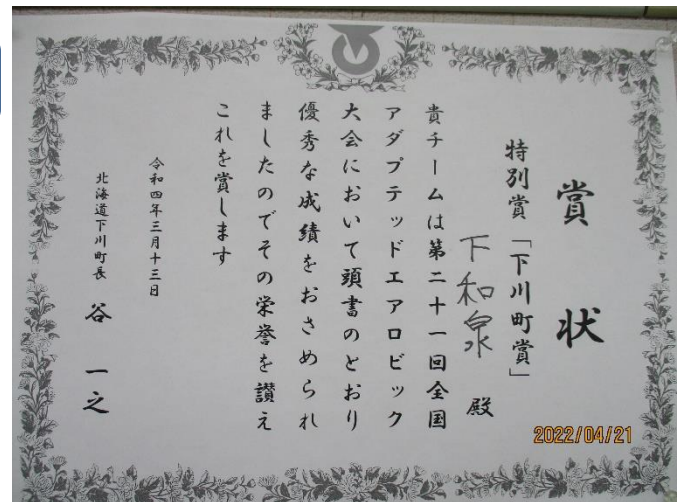 賞状
特別賞「下川町賞」
下和泉 殿
貴チームは第二十一回全国
アダプテッドエアロビック
大会において頭書のとおり
優秀な成績をおさめられ
ましたのでその栄誉を讃え
これを賞します
令和四年三月十三日
北海道下川町長 谷一之
2022/04/21